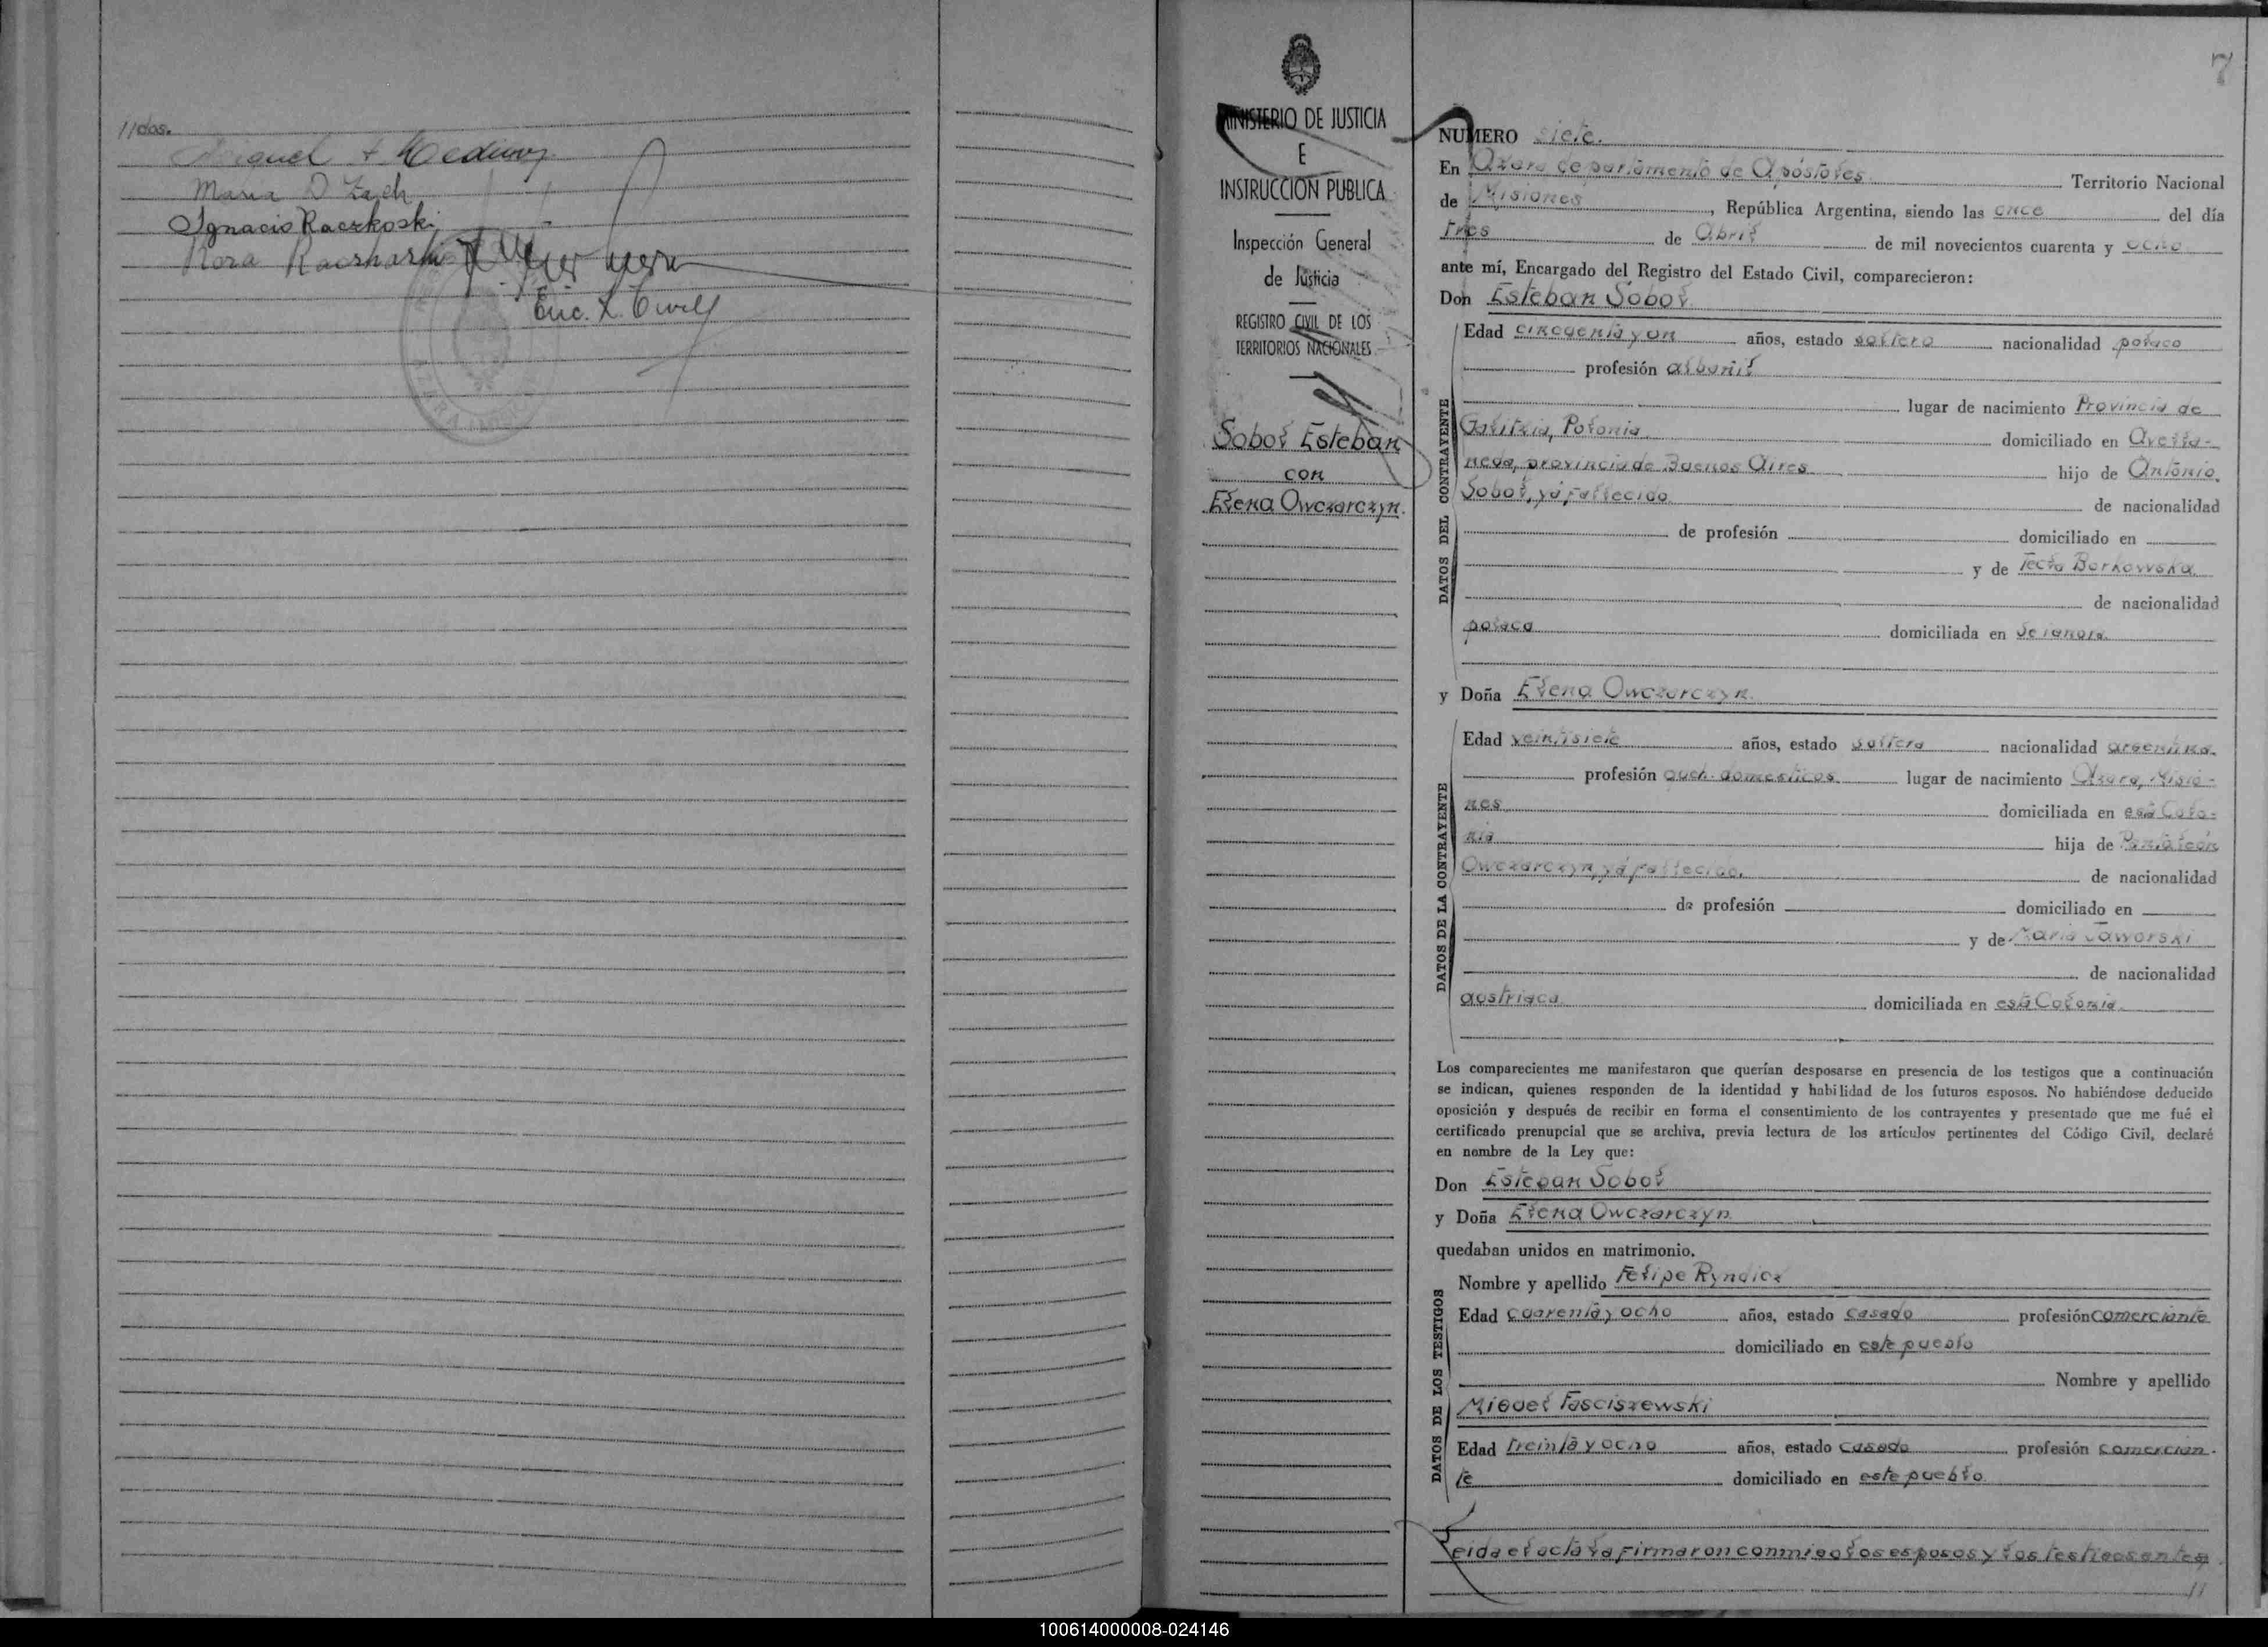 //dos.
Miguel
Maria D Zach
Ignacio Raczkoski
Rosa
Enc. R. Civil
7
MINISTERIO DE JUSTICIA
E
INSTRUCCION PUBLICA
Inspección General
de Justicia
REGISTRO CIVIL DE LOS
TERRITORIOS NACIONALES
Sobol Esteban
con
Elena Owczarczyn.
NUMERO siete.
En Azara departamento de Apóstoles Territorio Nacional
de Misiones, República Argentina, siendo las once del día
tres de Abril de mil novecientos cuarenta y ocho
ante mí, Encargado del Registro del Estado Civil, comparecieron:
Don Esteban Sobol
DATOS DEL CONTRAYENTE
Edad cincuenta y un años, estado soltero nacionalidad polaco
profesión albañil
lugar de nacimiento Provincia de
Galitzia, Polonia domiciliado en Avella-
neda, provincia de Buenos Aires hijo de Antonio
Sobol, yá fallecido de nacionalidad
de profesión domiciliado en
y de Tecla Borkowska
de nacionalidad
polaca domiciliada en Se ignora.
y Doña Elena Owczarczyn.
DATOS DE LA CONTRAYENTE
Edad veintisiete años, estado soltera nacionalidad argentina.
profesión queh. domesticos lugar de nacimiento Azara, Misio-
nes domiciliada en esta Colo-
nia hija de Pantaleón
Owczarczyn, yá fallecido. de nacionalidad
de profesión domiciliado en
y de Maria Jaworski
de nacionalidad
austriaca domiciliada en esta Colonia.
Los comparecientes me manifestaron que querían desposarse en presencia de los testigos que a continuación
se indican, quienes responden de la identidad y habilidad de los futuros esposos. No habiéndose deducido
oposición y después de recibir en forma el consentimiento de los contrayentes y presentado que me fué el
certificado prenupcial que se archiva, previa lectura de los artículos pertinentes del Código Civil, declaré
en nombre de la Ley que:
Don Esteban Sobol
y Doña Elena Owczarczyn
quedaban unidos en matrimonio.
DATOS DE LOS TESTIGOS
Nombre y apellido Felipe Ryndicz
Edad cuarenta y ocho años, estado casado profesión comerciante
domiciliado en este pueblo
Nombre y apellido
Miguel Fasciszewski
Edad treinta y ocho años, estado casado profesión comercian-
te domiciliado en este pueblo
Leida el acta la firmaron conmigo los esposos y los testigos antes
//
100614000008-024146